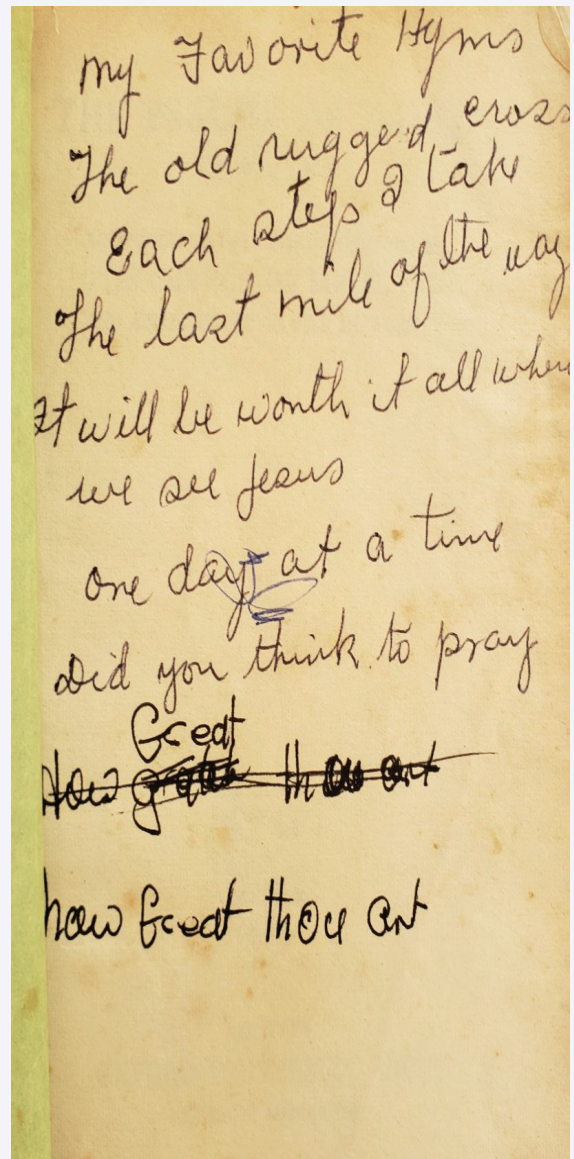 my Favorite Hyms
The old rugged cross
Each steps I take
The last mile of the way
It will be worth it all when
we see Jesus
one day at a time
Did you think to pray
Great
How great thou art
how Great thou art